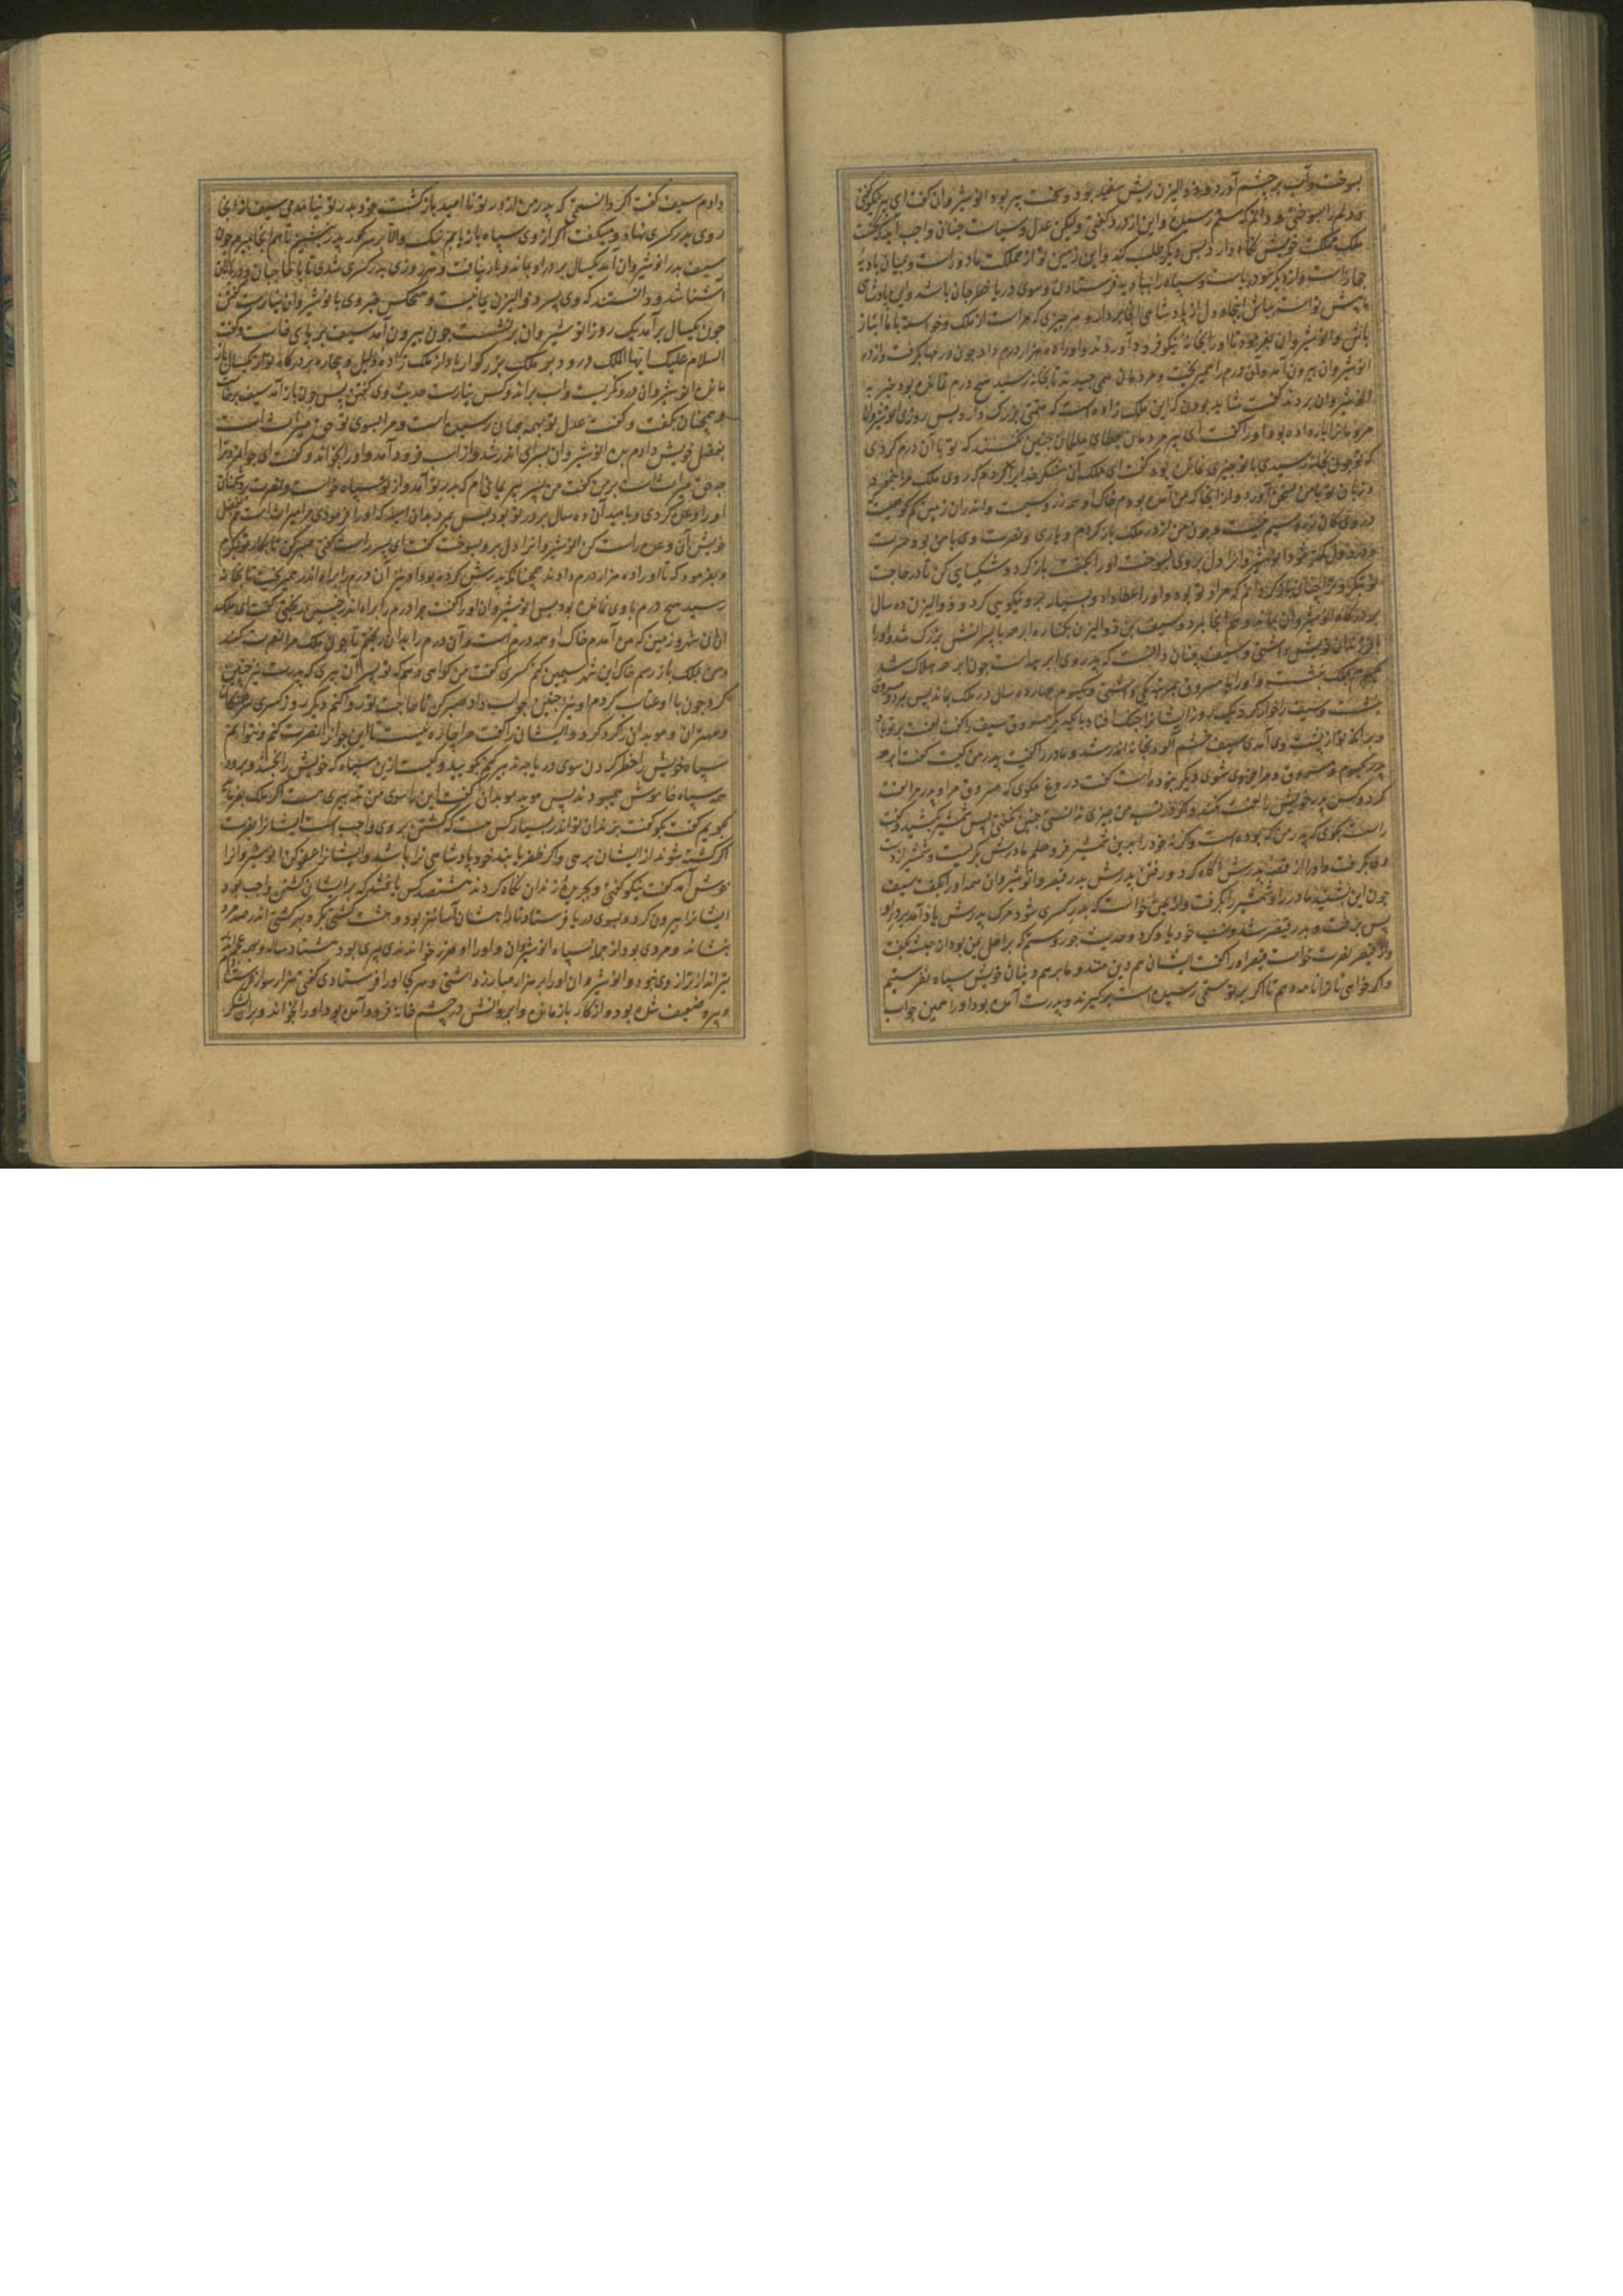 بسوخت و آب بر چشم آورد و ذوالیزن ریش سفید بود و سخت پیر بود انوشیروان گفت ای پیر نیکو گفتی
و دلم را بسوختی و دانم که ستم رسیده و این از درد گفتی ولیکن عدل و سیاست چنان واجب آید که نخست
ملک مملکت خویش نگاه دارد پس دیگر طلب کند و این زمین تو از مملکت ما دور است و بمیان بادیه
حجاز است و از دیگر سو دریاست و سپاه را ببادیه فرستادن و سوی دریا خطر جان باشد و این پادشاهی
ما پیش تو است بباش اینجا و دل از پادشاهی آنجا بردار و هر چیزی که مرا است از ملک و خواسته با ما انباز
باش و انوشیروان بفرمود تا او را بخانه نیکو فرود آوردند و او را ده هزار درم داد چون درمها بگرفت و از در
انوشیروان بیرون آمد و آن درم را همی ریخت و مردمان همی چیدند تا بخانه رسید هیچ درم نمانده بود خبر به
انوشیروان بردند گفت شاید بودن که این ملک زاده است که همتی بزرگ دارد پس روزی انوشیروان
مردمانرا بار داده بود او را گفت ای پیر مرد با عطای ملکان چنین نکنند که تو با آن درم کردی
که تو چون بخانه رسیدی با تو چیزی نمانده بود گفت ای ملک آن شکر خدایرا کردم که روی ملک مرا بنمود
و زبان تو با من بسخن آورد و از آنجا که من آمده بودم خاک او همه زر و سیمست و اندران زمین کم کوهیست
که در وی کان زر و سیم نیست و چون من از در ملک باز گردم و یاری و نصرت وی با من بود حسرت
درم در دل من نبود انوشیروانرا دل بر وی بسوخت او را بگفت باز گرد و شکیبایی کن تا در حاجت
تو بنگرم و ترا چنان باز گردانم که مراد تو بود و او را عطا داد و بسیار بر وی نیکویی کرد و ذوالیزن ده سال
بر درگاه انوشیروان بماند و هم آنجا بمرد و سیف بن ذوالیزن بکنار ابرهه با پسرانش بزرگ شد و او را
با فرزندان خویش داشتی و سیف چنان دانست که پدر وی ابرهه است چون ابرهه هلاک شد
یکسوم بملک بنشست و او را با مسروق همی نیکو داشتی و یکسوم چهارده سال در ملک بماند پس بمرد و مسروق
بنشست و سیف را خوار کرد یک روز ایشانرا جنگ افتاد با یکدیگر مسروق سیف را گفت لعنت بر تو باد
و بر آنکه تو از پشت وی آمدی سیف خشم آلود بخانه اندر شد و مادر را گفت پدر من کیست گفت ابرهه
پدر یکسوم و مسروق و مرا جز وی شوی دیگر نبوده است گفت دروغ مگوی که مسروق مرا و پدر مرا لعنت
کرد و کس پدر خویش را لعنت نکند و اگر در نسب من چیزی ندانستی چنین نگفتی پس شمشیر بکشید و گفت
راست بگوی که پدر من که بوده است و اگر نه خود را بدین شمشیر فرو هلم مادرش بگریست و شمشیر از دست
وی بگرفت و او را از قصه پدرش آگاه کرد و رفتن پدرش بدر قیصر و انوشیروان همه او را بگفت سیف
چون این بشنید مادر را و شمشیر را بگرفت و از یمن خواست که بدر کسری شود مرگ پدرش یاد آمد بر در او
پس برفت و بدر قیصر شد و نسب خود یاد کرد و حدیث جور و ستم که بر اهل یمن بود از حبشه بگفت
و از قیصر نصرت خواست قیصر او را گفت ایشان هم دین منند و ما بر هم دینان خویش سپاه نفرستیم
و اگر خواهی ترا نامه دهم تا اگر بر تو ستمی رسیده است بر گیرند و پدرت آمده بود او را همین جواب
دادم سیف گفت اگر دانستمی که پدر من از در تو نا امید باز گشت خود بدر تو نیامدمی سیف از آنجا
روی بدر کسری نهاد و میگفت اگر از وی سپاه باز یابم نیک و الا بر سر گور پدر بنشینم تا هم آنجا بمیرم چون
سیف بدر انوشیروان آمد یکسال بر در او بماند و بار نیافت و هر روزی بدر کسری شدی تا با حاجبان و دربانان
آشنا شد و دانستند که وی پسر ذوالیزن یمانیست و هیچکس خبر وی با نوشیروان نیارست گفتن
چون یکسال بر آمد یک روز انوشیروان بر نشست چون بیرون آمد سیف بر پای خاست و گفت
السلام علیک ایها الملک درود بر ملک بزرگوار باد از ملک زاده ذلیل و بیچاره بر درگاه تو از یکسال باز
مانده انوشیروان در وی نگریست و اسب براند و کس نیارست حدیث وی گفتن پس چون باز آمد سیف برخاست
و همچنان بگفت و گفت عدل تو بهمه جهان رسیده است و مرا بسوی تو حق میراث است
بفضل خویش دادم بده انوشیروان بسرای اندر شد و از اسب فرود آمد و او را بخواند و گفت ای جوانمرد ترا
چه حق میراث است بر من گفت من پسر پیر یمانی ام که بدر تو آمد و از تو سپاه خواست و نصرت بر دشمنان
او را وعده کردی و بامید آن ده سال بر در تو بود پس بمرد بدان امید که او را فرمودی مرا میراث است بفضل
خویش آن وعده راست کن انوشیروانرا دل برو بسوخت گفت ای پسر راست گفتی صبر کن تا بکار تو بنگرم
و بفرمود که تا او را ده هزار درم دادند همچنانکه پدرش کرده بود او نیز آن درم را براه اندر همی ریخت تا بخانه
رسید هیچ درم با وی نمانده بود پس انوشیروان او را گفت چرا درم را براه اندر چنین بریختی گفت ای ملک
از آن شهر و زمین که من آمدم خاک او همه درم است و آن درم را بدان ریختم تا چون ملک مرا نصرت کند
و من بملک باز رسم خاک این شهر سیمین کنم کسری گفت من گواهی دهم که تو پسر آن پیری که پدرت نیز چنین
کرد چون با او عتاب کردم او نیز چنین جواب داد صبر کن تا حاجت تو روا کنم دیگر روز کسری مرزبانان
و مهتران و موبدان را گرد کرد و ایشان را گفت مرا چاره نیست تا این جوانرا نصرت کنم و نتوانم
سپاه خویش را خطر کردن سوی دریا چه تدبیر کنیم بگویید و کیست ازین سپاه که خویش را بخشد و برود
همه سپاه خاموش همی بودند پس موبد موبدان گفت این را سوی من تدبیری هست اگر ملک بفرماید
بگویم گفت بگو گفت بزندان تو اندر بسیار کس هست که کشتن بر وی واجب است ایشانرا بفرست
اگر کشته شوند از ایشان برهی و اگر ظفر یابند خود پادشاهی ترا باشد و ایشانرا عفو کن انوشیروانرا
خوش آمد گفت نیکو گفتی و بجریده زندان نگاه کردند هشتصد کس یافتند که بر ایشان کشتن واجب بود
ایشانرا بیرون کرد و بسوی دریا فرستاد و ایشان را هشت کشتی بکرد و بهر کشتی اندر صد مرد
بنشاند و مردی بود از جمله سپاه انوشیروان و او را وهرز خواندندی پیری بود هشتاد ساله و بهمه عجم اندر
تیرانداز تر از وی نبود و انوشیروان او را بر هزار مبارز داشتی و هر کجا او را فرستادی گفتی هزار سوار فرستادم
و پیر و ضعیف شده بود و از کار باز مانده و ابروانش در چشم خانه فرود آمده بود او را بخواند و بر آن لشکر